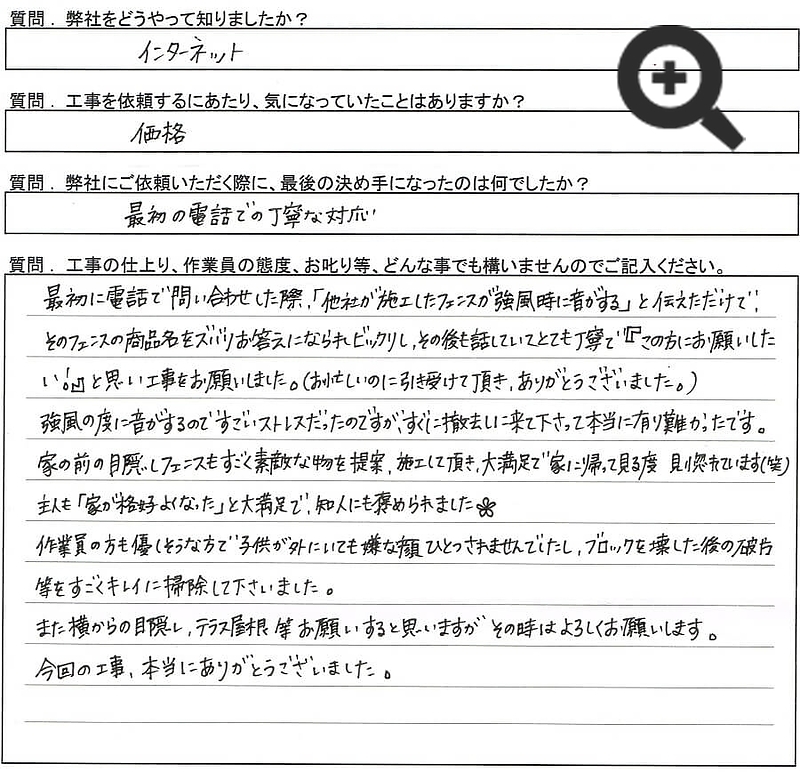 質問．弊社をどうやって知りましたか？
インターネット
質問．工事を依頼するにあたり、気になっていたことはありますか？
価格
質問．弊社にご依頼いただく際に、最後の決め手になったのは何でしたか？
最初の電話での丁寧な対応
質問．工事の仕上り、作業員の態度、お叱り等、どんな事でも構いませんのでご記入ください。
最初に電話で問い合わせした際、「他社が施工したフェンスが強風時に音がする」と伝えただけで、
そのフェンスの商品名をズバリお答えになられビックリし、その後も話していてとても丁寧で『この方にお願いした
い！』と思い工事をお願いしました。(お忙しいのに引き受けて頂き、ありがとうございました。)
強風の度に音がするのですごいストレスだったのですが、すぐに撤去しに来て下さって本当に有り難かったです。
家の前の目隠しフェンスもすごく素敵な物を提案、施工して頂き、大満足で家に帰って見る度 見惚れています(笑)
主人も「家が格好よくなった」と大満足で、知人にも褒められました
作業員の方も優しそうな方で子供が外にいても嫌な顔ひとつされませんでしたし、ブロックを壊した後の破片
等をすごくキレイに掃除して下さいました。
また横からの目隠し、テラス屋根等お願いすると思いますがその時はよろしくお願いします。
今回の工事、本当にありがとうございました。